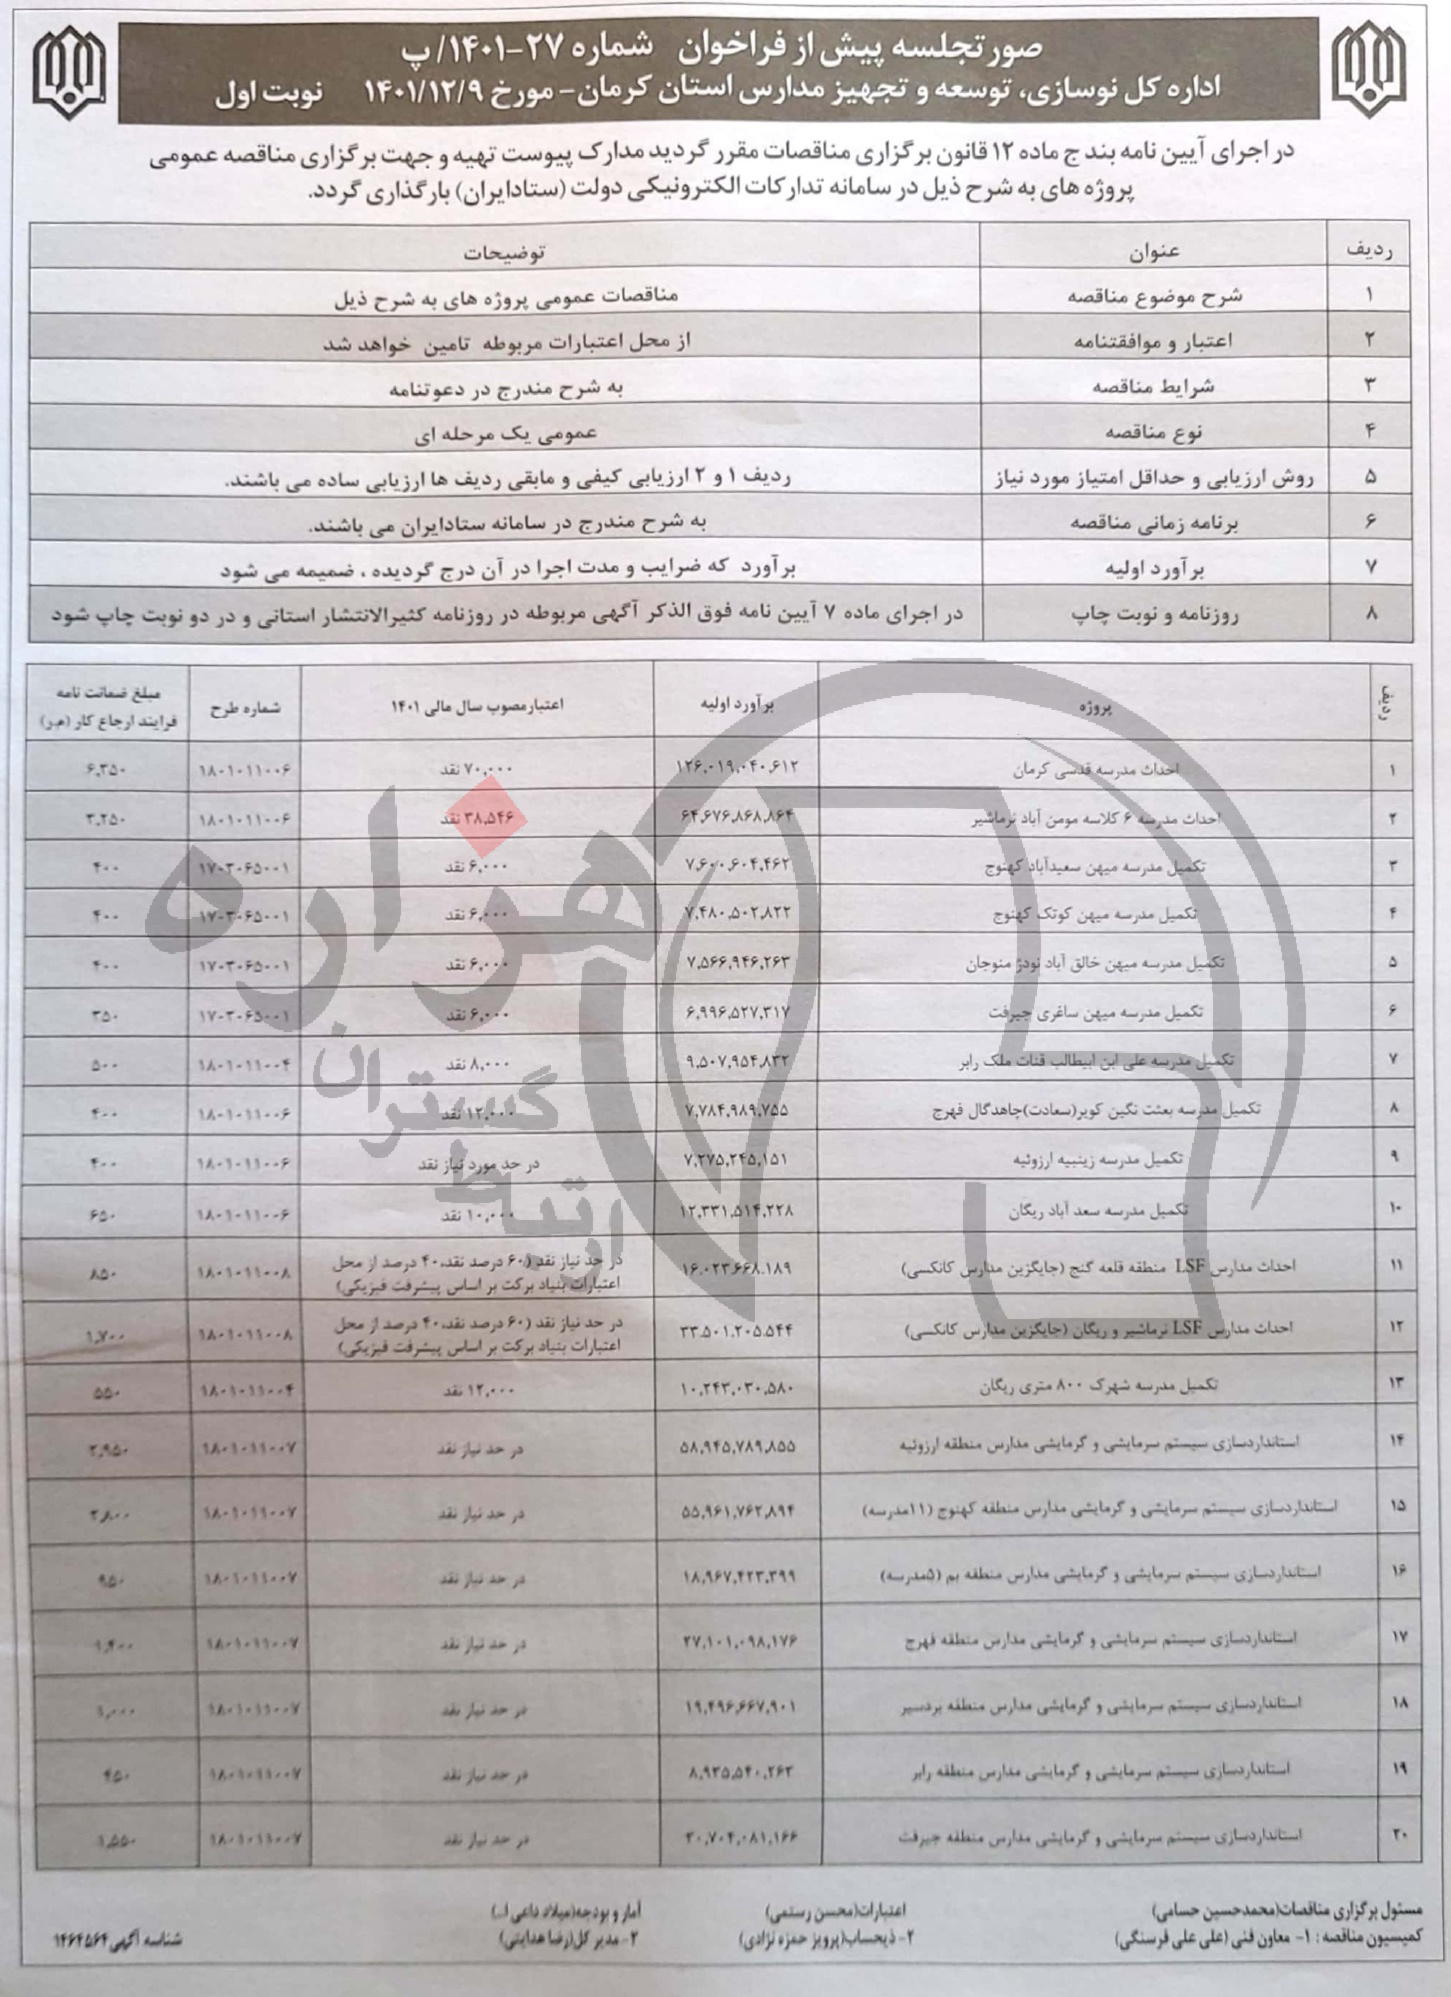 صورتجلسه پیش از فراخوان شماره ۲۷-۱۴۰۱/پ
اداره کل نوسازی، توسعه و تجهیز مدارس استان کرمان- مورخ ۱۴۰۱/۱۲/۹ نوبت اول
در اجرای آیین نامه بند ج ماده ۱۲ قانون برگزاری مناقصات مقرر گردید مدارک پیوست تهیه و جهت برگزاری مناقصه عمومی
پروژه های به شرح ذیل در سامانه تدارکات الکترونیکی دولت (ستادایران) بارگذاری گردد.
ردیف عنوان توضیحات
۱ شرح موضوع مناقصه مناقصات عمومی پروژه های به شرح ذیل
۲ اعتبار و موافقتنامه از محل اعتبارات مربوطه تامین خواهد شد
۳ شرایط مناقصه به شرح مندرج در دعوتنامه
۴ نوع مناقصه عمومی یک مرحله ای
۵ روش ارزیابی و حداقل امتیاز مورد نیاز ردیف ۱ و ۲ ارزیابی کیفی و مابقی ردیف ها ارزیابی ساده می باشند.
۶ برنامه زمانی مناقصه به شرح مندرج در سامانه ستادایران می باشند.
۷ برآورد اولیه برآورد که ضرایب و مدت اجرا در آن درج گردیده ، ضمیمه می شود
۸ روزنامه و نوبت چاپ در اجرای ماده ۷ آیین نامه فوق الذکر آگهی مربوطه در روزنامه کثیرالانتشار استانی و در دو نوبت چاپ شود
ردیف پروژه برآورد اولیه اعتبارمصوب سال مالی ۱۴۰۱ شماره طرح مبلغ ضمانت نامه
فرایند ارجاع کار (م.ر)
۱ احداث مدرسه قدسی کرمان ۱۲۶,۰۱۹,۰۴۰,۶۱۲ ۷۰,۰۰۰ نقد ۱۸۰۱۰۱۱۰۰۶ ۶,۳۵۰
۲ احداث مدرسه ۶ کلاسه مومن آباد نرماشیر ۶۴,۶۷۶,۸۶۸,۸۶۴ ۳۸,۵۴۶ نقد ۱۸۰۱۰۱۱۰۰۶ ۳,۲۵۰
۳ تکمیل مدرسه میهن سعیدآباد کهنوج ۷,۶۰۰,۶۰۴,۴۶۲ ۶,۰۰۰ نقد ۱۷۰۳۰۶۵۰۰۱ ۴۰۰
۴ تکمیل مدرسه میهن کوتک کهنوج ۷,۴۸۰,۵۰۲,۸۲۲ ۶,۰۰۰ نقد ۱۷۰۳۰۶۵۰۰۱ ۴۰۰
۵ تکمیل مدرسه میهن خالق آباد نودژ منوجان ۷,۵۶۶,۹۴۶,۲۶۳ ۶,۰۰۰ نقد ۱۷۰۳۰۶۵۰۰۱ ۴۰۰
۶ تکمیل مدرسه میهن ساغری جیرفت ۶,۹۹۶,۵۲۷,۳۱۷ ۶,۰۰۰ نقد ۱۷۰۳۰۶۵۰۰۱ ۳۵۰
۷ تکمیل مدرسه علی ابن ابیطالب قنات ملک رابر ۹,۵۰۷,۹۵۴,۸۳۲ ۸,۰۰۰ نقد ۱۸۰۱۰۱۱۰۰۴ ۵۰۰
۸ تکمیل مدرسه بعثت نگین کویر(سعادت)چاهدگال فهرج ۷,۷۸۴,۹۸۹,۷۵۵ ۱۲,۰۰۰ نقد ۱۸۰۱۰۱۱۰۰۶ ۴۰۰
۹ تکمیل مدرسه زینبیه ارزوئیه ۷,۲۷۵,۲۴۵,۱۵۱ در حد مورد نیاز نقد ۱۸۰۱۰۱۱۰۰۶ ۴۰۰
۱۰ تکمیل مدرسه سعد آباد ریگان ۱۲,۳۳۱,۵۱۴,۲۲۸ ۱۰,۰۰۰ نقد ۱۸۰۱۰۱۱۰۰۶ ۶۵۰
۱۱ احداث مدارس LSF منطقه قلعه گنج (جایگزین مدارس کانکسی) ۱۶,۰۲۳,۶۶۸,۱۸۹ در حد نیاز نقد (۶۰ درصد نقد،۴۰ درصد از محل
اعتبارات بنیاد برکت بر اساس پیشرفت فیزیکی) ۱۸۰۱۰۱۱۰۰۸ ۸۵۰
۱۲ احداث مدارس LSF نرماشیر و ریگان (جایگزین مدارس کانکسی) ۳۳,۵۰۱,۲۰۵,۵۴۴ در حد نیاز نقد (۶۰ درصد نقد،۴۰ درصد از محل
اعتبارات بنیاد برکت بر اساس پیشرفت فیزیکی) ۱۸۰۱۰۱۱۰۰۸ ۱,۷۰۰
۱۳ تکمیل مدرسه شهرک ۸۰۰ متری ریگان ۱۰,۲۴۳,۰۳۰,۵۸۰ ۱۲,۰۰۰ نقد ۱۸۰۱۰۱۱۰۰۴ ۵۵۰
۱۴ استانداردسازی سیستم سرمایشی و گرمایشی مدارس منطقه ارزوئیه ۵۸,۹۴۵,۷۸۹,۸۵۵ در حد نیاز نقد ۱۸۰۱۰۱۱۰۰۷ ۲,۹۵۰
۱۵ استانداردسازی سیستم سرمایشی و گرمایشی مدارس منطقه کهنوج (۱۱مدرسه) ۵۵,۹۶۱,۷۶۲,۸۹۴ در حد نیاز نقد ۱۸۰۱۰۱۱۰۰۷ ۲,۸۰۰
۱۶ استانداردسازی سیستم سرمایشی و گرمایشی مدارس منطقه بم (۵مدرسه) ۱۸,۹۶۷,۴۲۳,۳۹۹ در حد نیاز نقد ۱۸۰۱۰۱۱۰۰۷ ۹۵۰
۱۷ استانداردسازی سیستم سرمایشی و گرمایشی مدارس منطقه فهرج ۲۷,۱۰۱,۰۹۸,۱۷۶ در حد نیاز نقد ۱۸۰۱۰۱۱۰۰۷ ۱,۴۰۰
۱۸ استانداردسازی سیستم سرمایشی و گرمایشی مدارس منطقه بردسیر ۱۹,۴۹۶,۶۶۷,۹۰۱ در حد نیاز نقد ۱۸۰۱۰۱۱۰۰۷ ۱,۰۰۰
۱۹ استانداردسازی سیستم سرمایشی و گرمایشی مدارس منطقه رابر ۸,۹۲۵,۵۴۰,۲۶۳ در حد نیاز نقد ۱۸۰۱۰۱۱۰۰۷ ۴۵۰
۲۰ استانداردسازی سیستم سرمایشی و گرمایشی مدارس منطقه جیرفت ۳۰,۷۰۴,۰۸۱,۱۶۶ در حد نیاز نقد ۱۸۰۱۰۱۱۰۰۷ ۱,۵۵۰
هزاره
ارتباط گستران
مسئول برگزاری مناقصات(محمدحسین حسامی) اعتبارات(محسن رستمی) آمار و بودجه(میلاد داعی
کمیسیون مناقصه : ۱- معاون فنی (علی علی فرسنگی) ۲- ذیحساب(پرویز حمزه نژادی) ۳- مدیر کل(رضا هدایتی) شناسه آگهی ۱۴۶۴۵۶۴